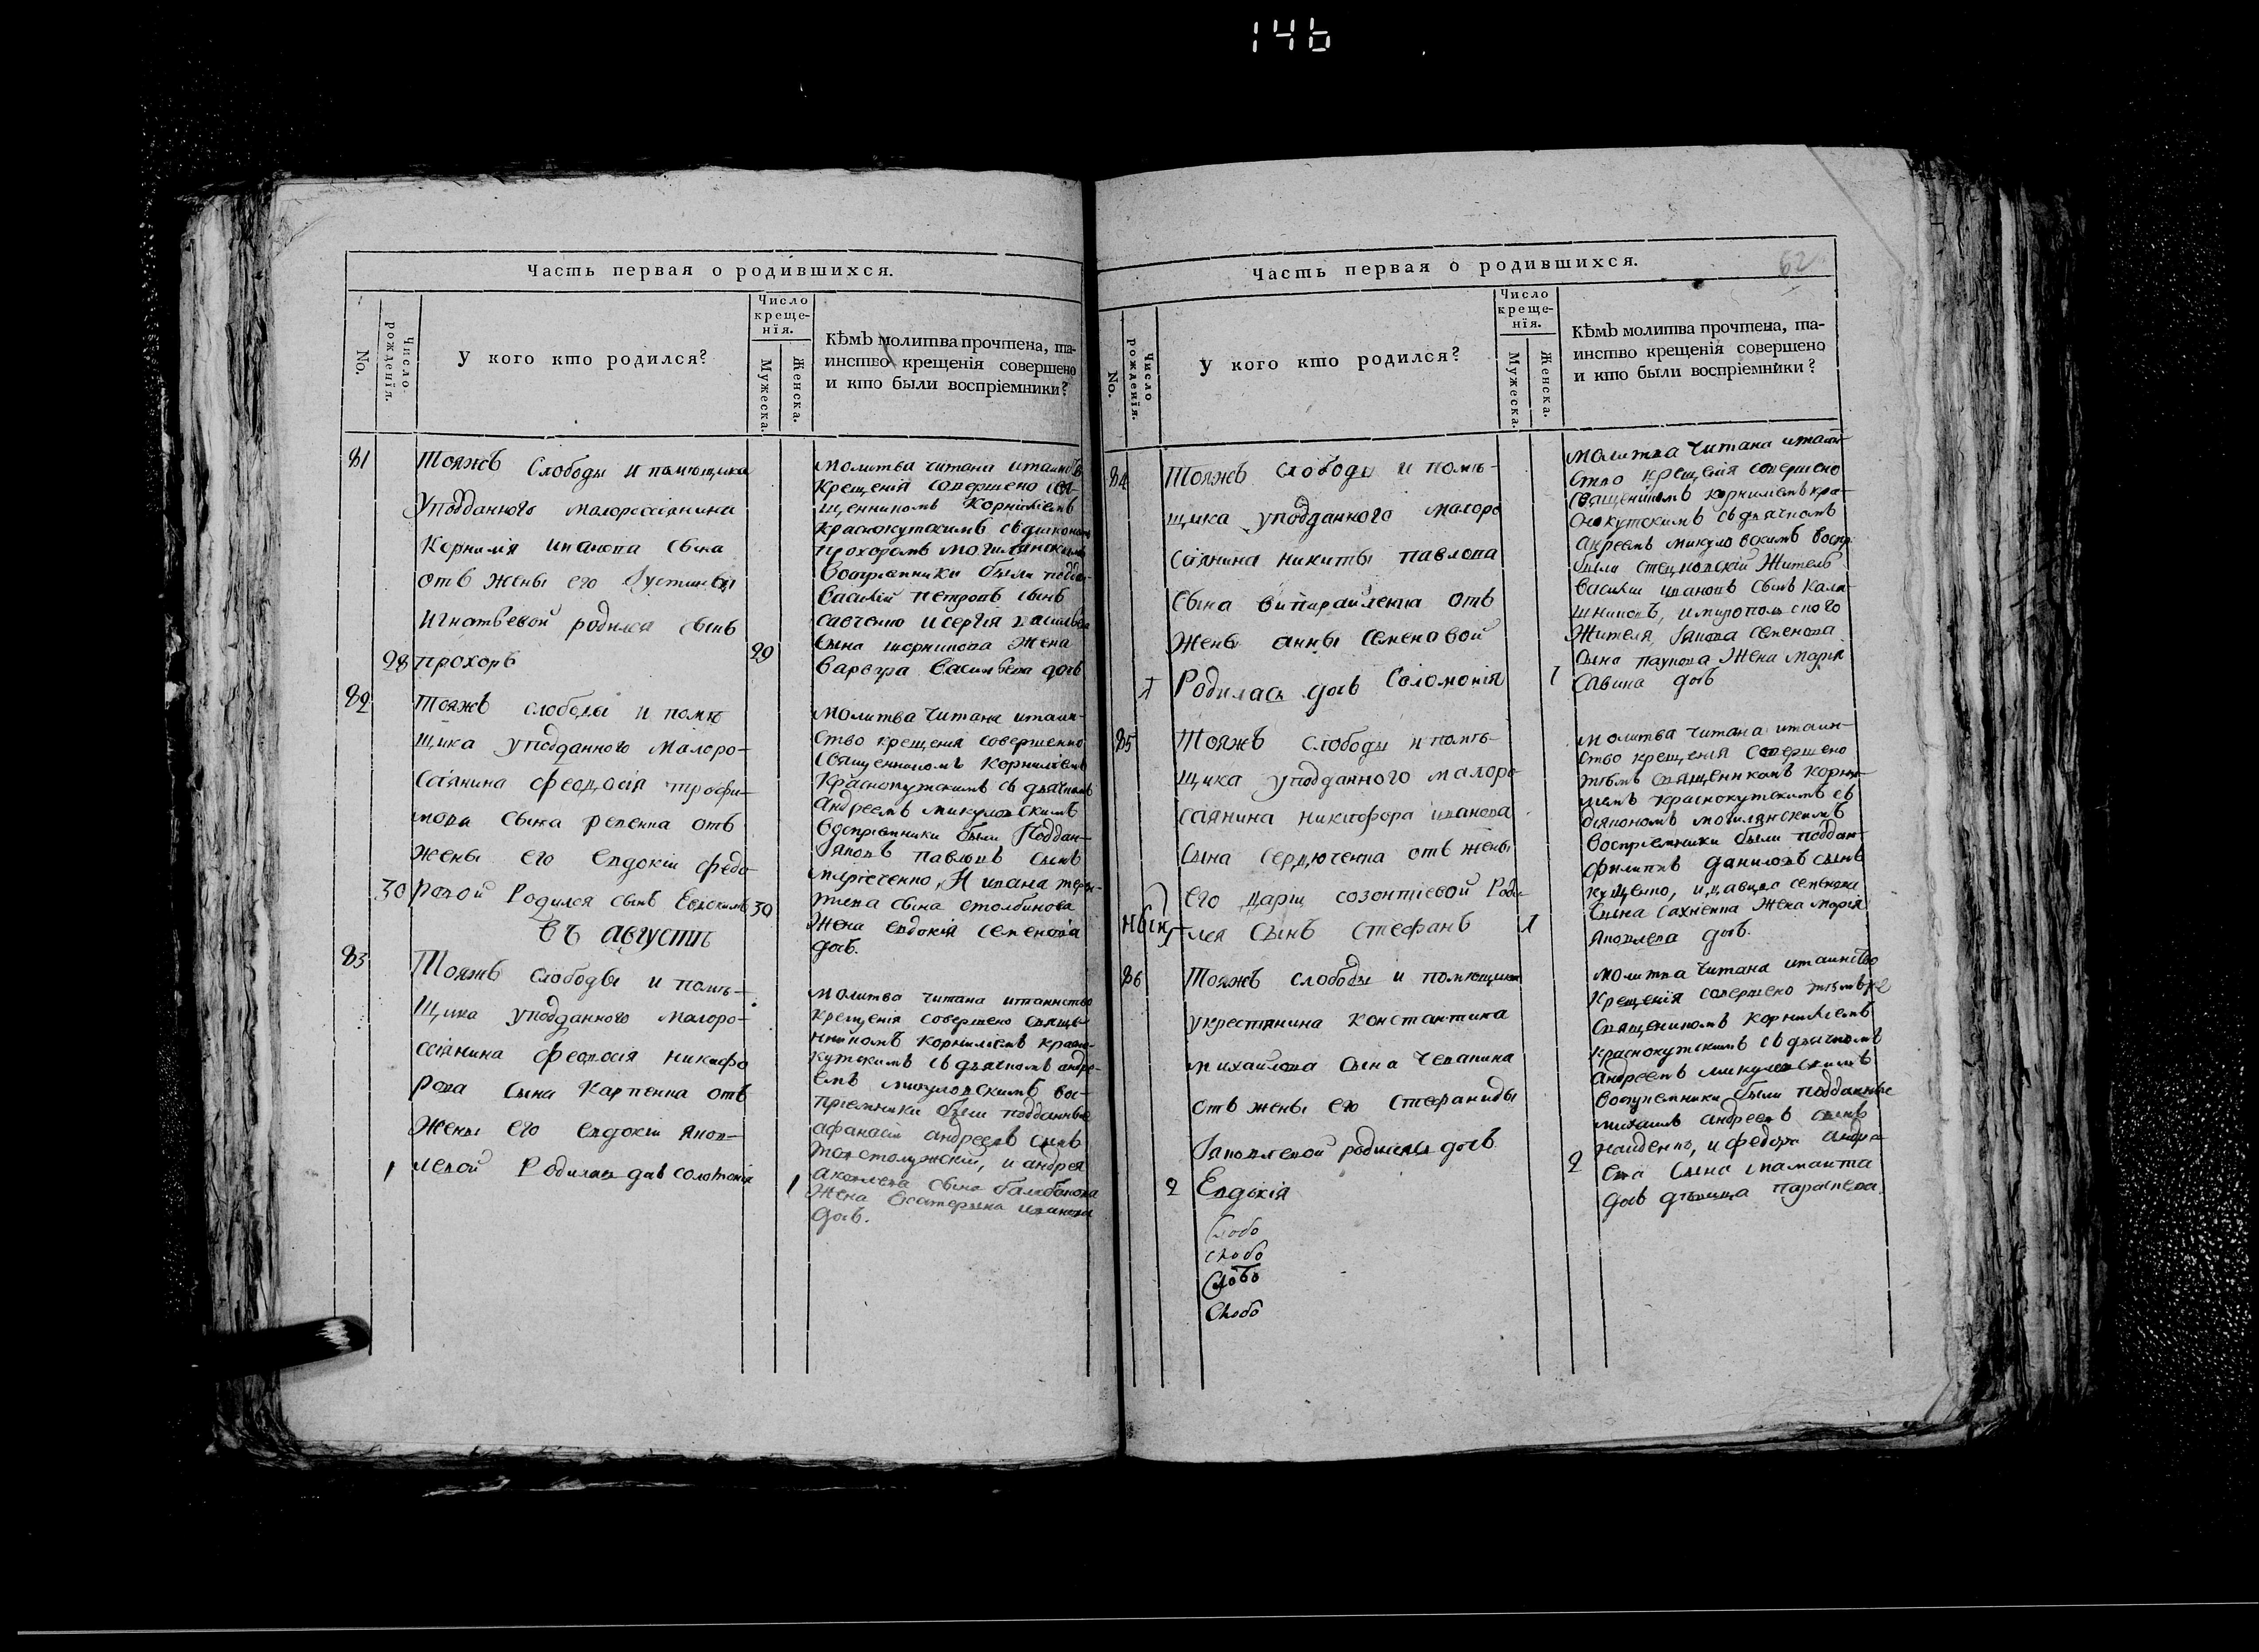 146
Часть первая о родившихся.
No.
Число рожденія.
У кого кто родился?
Число
креще-
нія.
Мужеска.
Женска.
Кѣмъ молитва прочтена, та-
инство крещенія совершено
и кто были воспріемники?
81
Тояжъ Слободы и помющика
Уподданного малороссіянина
Корнилія иванова сына
отъ жены его Іустины
Игнатьевой родился сынъ
28 прохоръ 29
молитва читана итаинств
крещенія совершено свя-
щенникомъ Корниліемъ
краснокутскимъ съдияконом
прохоромъ могилянскимъ
воспріемники были поддан-
василій петровъ сынъ
савченко исергія васильева
сына шорникова жена
варвара васильева дочь
82
Тояжъ слободы и помѣ
щика уподданного малоро-
ссіянина феодосія трофи-
мова сына ревенка отъ
жены его евдокіи федо
30 ровой Родился сынъ 30
молитва читана итаин-
ство крещенія совершенно
священникомъ корниліемъ
краснокутскимъ съ дьячкомъ
андреемъ микуловскимъ
воспріемники были Поддан-
Іяковъ павловъ сынъ
И ивана
сына столбинова
жена евдокія семенова
дочь.
Въ августѣ
83
Тояжъ слободы и помѣ-
щика уподданного малоро-
ссіянина феодосія никифо
рова сына карпенка отъ
жены его евдокіи яков-
1 левой Родилась дочь соломонія 1
молитва читана итаинство
крещенія совершено свяще-
нникомъ корниліемъ красно-
кутскимъ съ дьячкомъ андре-
емъ микуловскимъ вос-
пріемники были подданные
афанасій андреевъ сынъ
и андрея
яковлева сына балабанова
жена екатерина иванова
дочь.
Часть первая о родившихся.
62
No.
Число рожденія.
У кого кто родился?
Число
креще-
нія.
Мужеска.
Женска.
Кѣмъ молитва прочтена, та-
инство крещенія совершено
и кто были воспріемники?
84
Тояжъ слободы и помѣ-
щика уподданного малоро
ссіянина никиты павлова
сына отъ
жены анны семеновой
1 Родилась дочь Соломонія 1
молитва читана итаин
ство крещенія совершено
священникомъ корниліемъ кра-
снокутскимъ съдьячкомъ
андреемъ микуловскимъ воспр
были стецковскій житель
василій ивановъ сынъ кала-
шниковъ, имирополь ского
жителя Іякова семенова
сына паукова жена марія
савина дочь
85
Тояжъ слободы и помѣ-
щика уподданного малоро-
ссіянина никифора иванова
сына сердюченка отъ жены
его даріи созонтіевой Роди-
лся сынъ стефанъ 1
молитва читана итаин-
ство крещенія совершено
тѣмъ священникомъ корни-
ліемъ краснокутскимъ съ
діякономъ могилянскимъ
воспріемники были поддан-
филиппъ даниловъ сынъ
куценко, идавида семенова
сына сахненка жена марія
яковлева дочь.
86
Тояжъ слободы и помющика
укрестянина константина
михайлова сына чепанина
отъ жены его стефаниды
Іаковлевой родилась дочь
2 Евдокія 2
молитва читана итаинство
крещенія совершено тѣмъже
священикомъ корниліемъ
краснокутскимъ съдьячкомъ
андреемъ микуловскимъ
воспріемники были подданные
михаилъ андреевъ сынъ
найденко, и федора андре
ева сына
дочь дѣвица параскева.
Слобо
Слобо
Слобо
Слобо